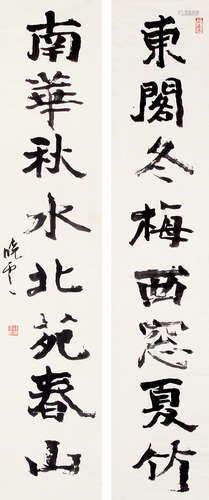 東閣冬梅西窓夏竹
南華秋水北苑春山
曉雲